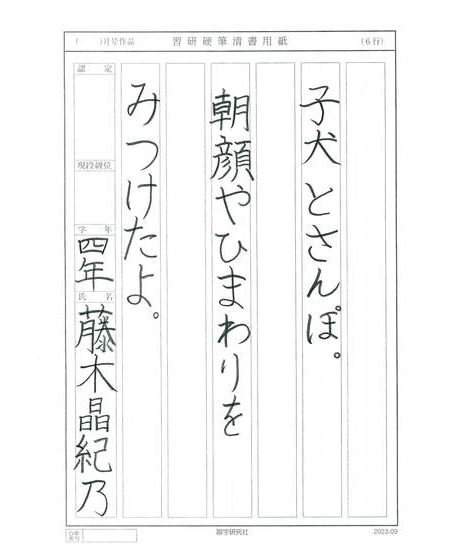 (　　)月号作品　習研硬筆清書用紙　(6行)
子犬とさんぽ。
朝顔やひまわりを
みつけたよ。
認定
現段級位
学年
四年
氏名
藤木晶紀乃
習字研究社
2023.09